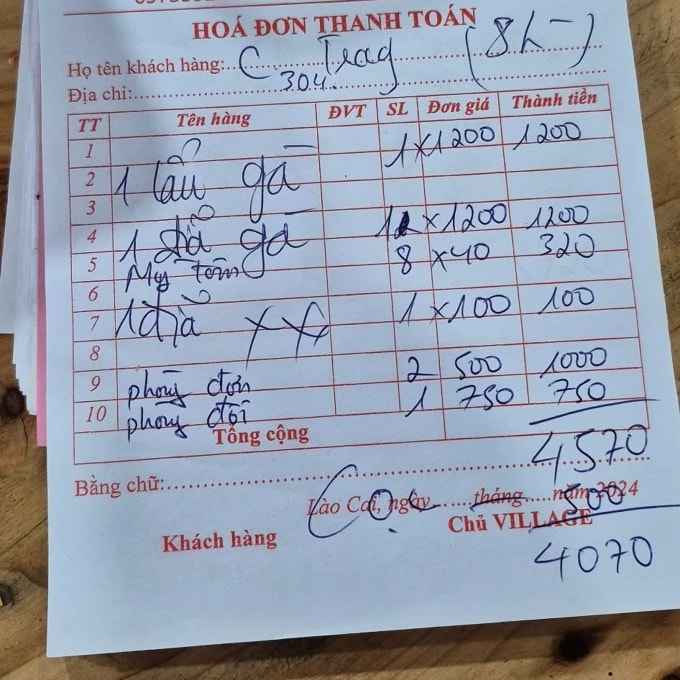 HOÁ ĐƠN THANH TOÁN
Họ tên khách hàng: C Trag (8k-)
Địa chỉ: 304
TT Tên hàng ĐVT SL Đơn giá Thành tiền
1 1 x 1200 1200
2 1 lẩu gà
3
4 1 đĩa gà 1 x 1200 1200
5 Mỳ tôm 8 x 40 320
6
7 1 đĩa xx 1 x 100 100
8
9 phòng đơn 2 500 1000
10 phòng đôi 1 750 750
Tổng cộng 4570
Bằng chữ:
Lào Cai, ngày tháng năm 2024
500
Khách hàng Chủ VILLAGE
4070